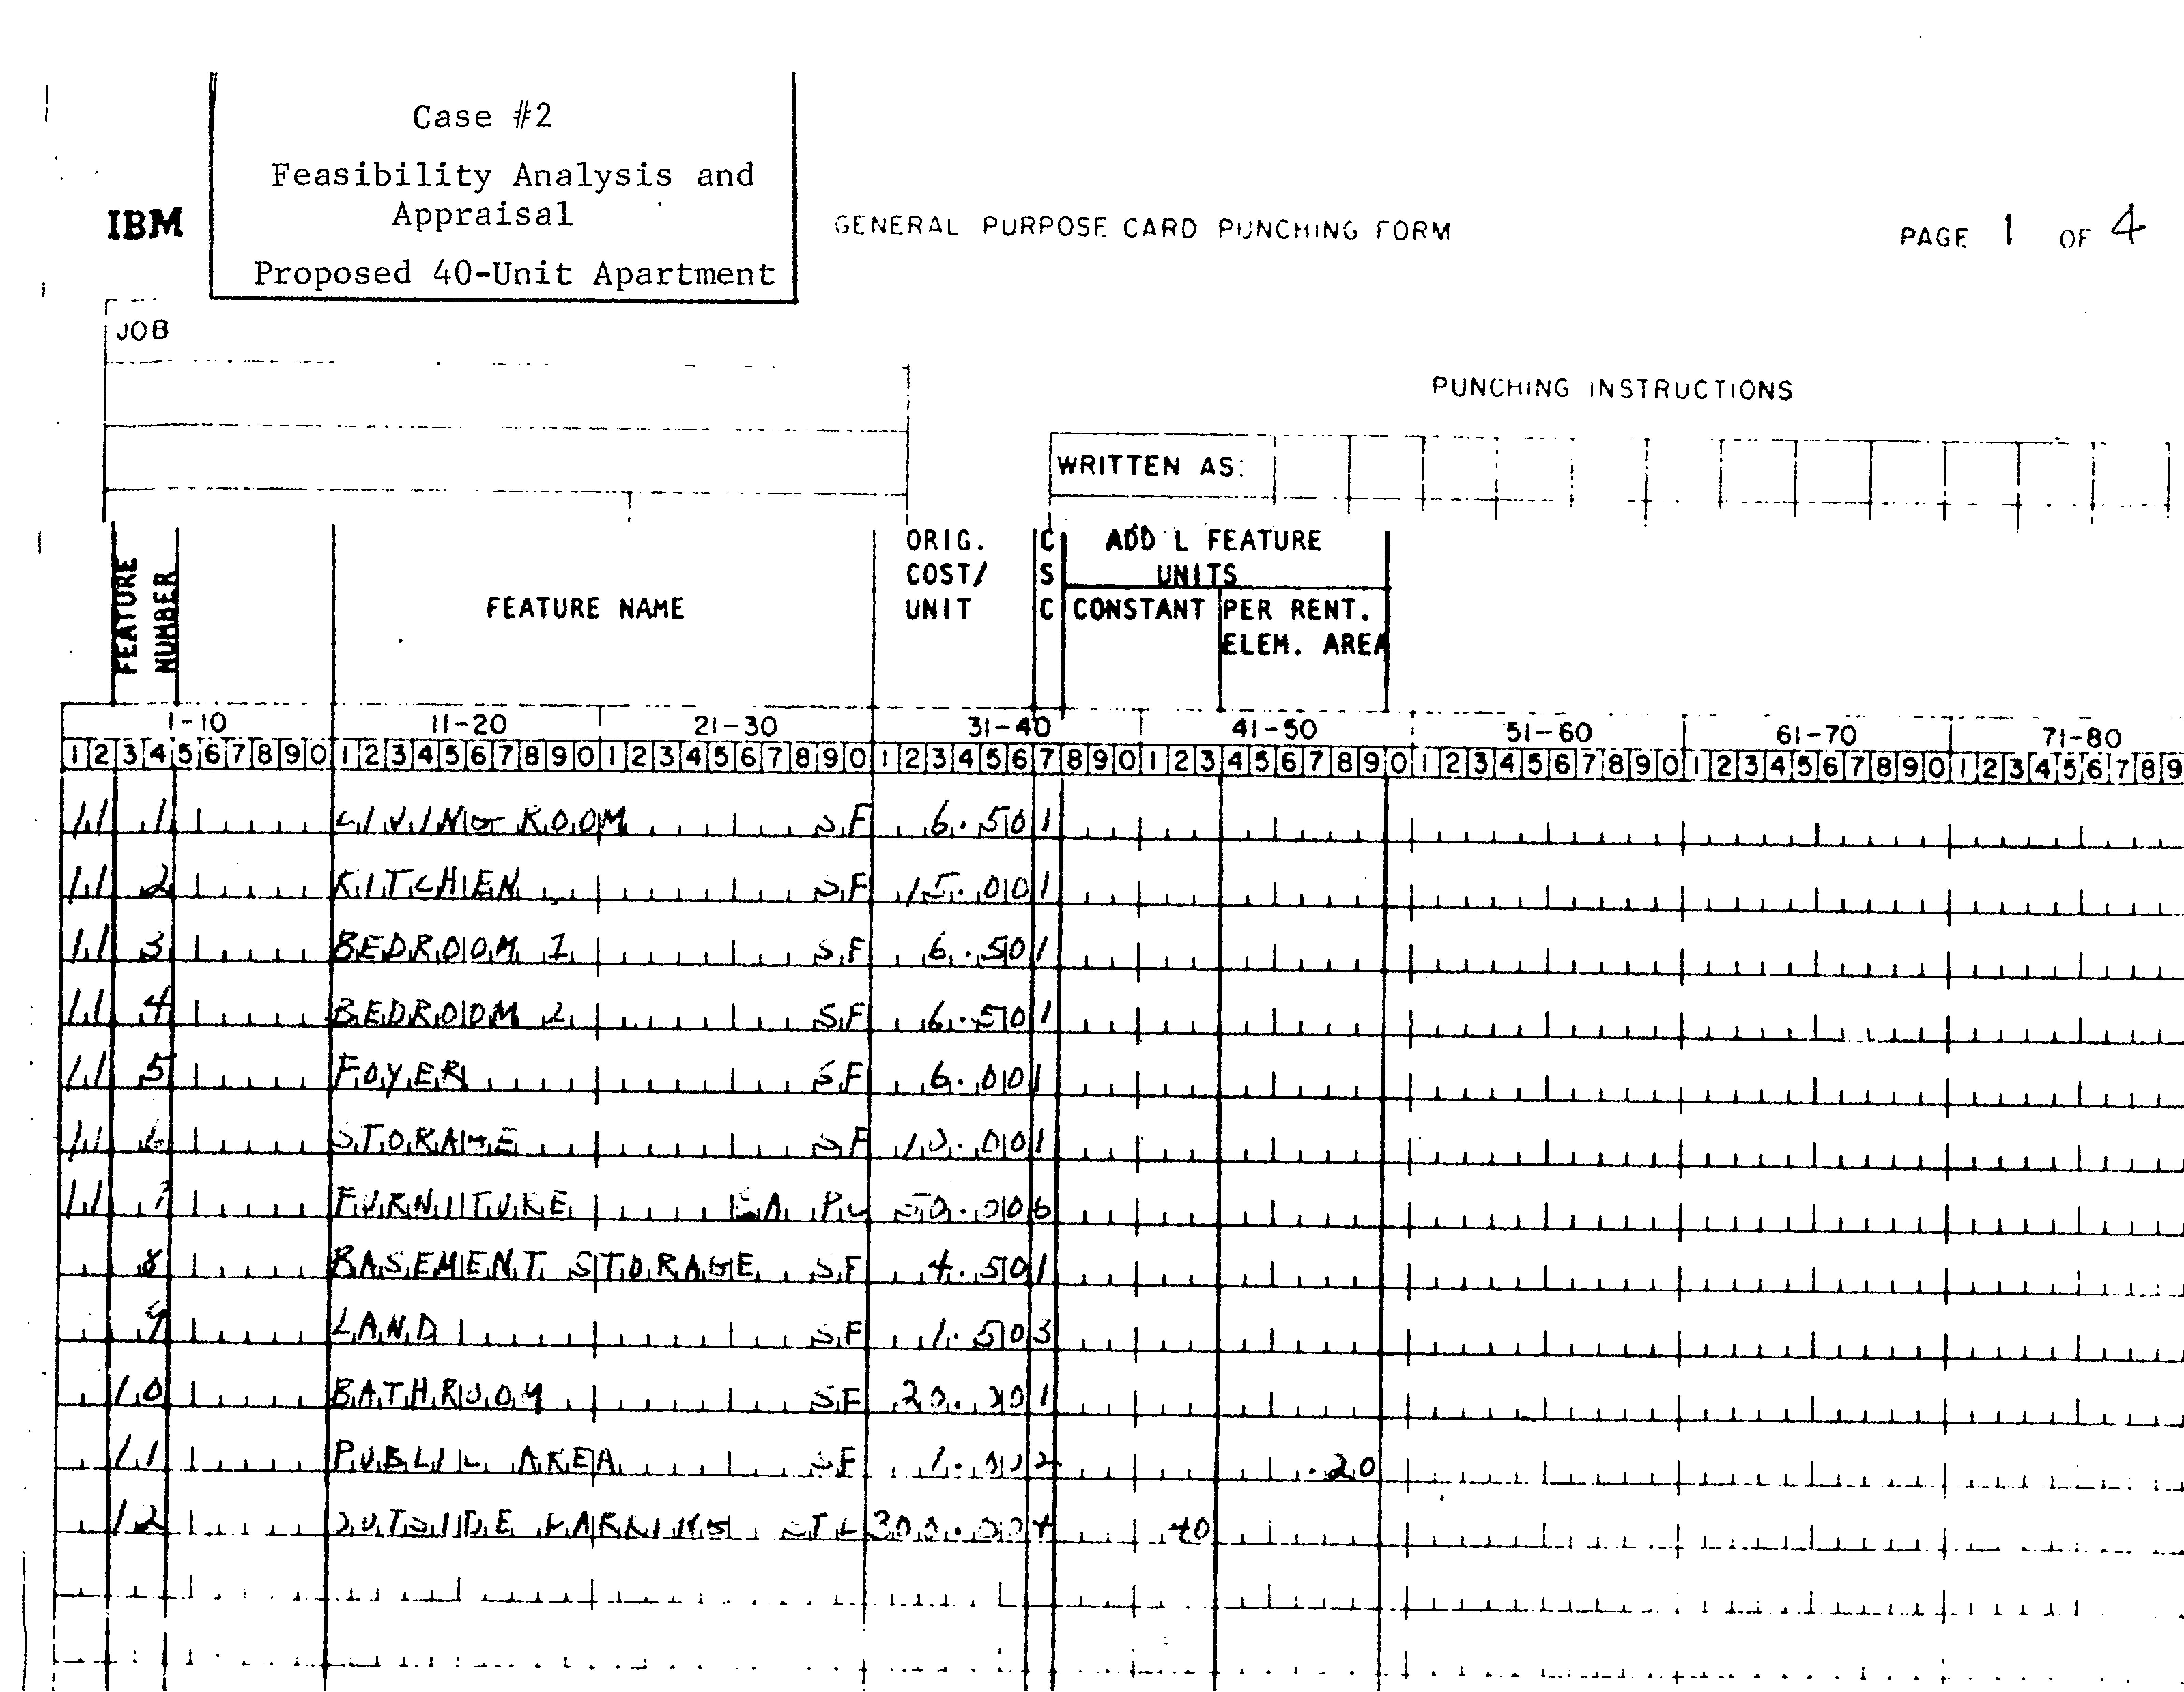 Case #2
Feasibility Analysis and
Appraisal
Proposed 40-Unit Apartment
IBM
GENERAL PURPOSE CARD PUNCHING FORM
PAGE 1 OF 4
JOB
PUNCHING INSTRUCTIONS
WRITTEN AS:
FEATURE NUMBER
FEATURE NAME
ORIG. COST/ UNIT
C S C
ADD'L FEATURE UNITS
CONSTANT
PER RENT. ELEM. AREA
1-10 11-20 21-30 31-40 41-50 51-60 61-70 71-80
1 2 3 4 5 6 7 8 9 0 1 2 3 4 5 6 7 8 9 0 1 2 3 4 5 6 7 8 9 0 1 2 3 4 5 6 7 8 9 0 1 2 3 4 5 6 7 8 9 0 1 2 3 4 5 6 7 8 9 0 1 2 3 4 5 6 7 8 9 0 1 2 3 4 5 6 7 8 9
11 1 LIVING ROOM SF 6.50 1
11 2 KITCHEN SF 15.00 1
11 3 BEDROOM 1 SF 6.50 1
11 4 BEDROOM 2 SF 6.50 1
11 5 FOYER SF 6.00 1
11 6 STORAGE SF 10.00 1
11 7 FURNITURE EA PC 50.00 6
8 BASEMENT STORAGE SF 4.50 1
9 LAND SF 1.50 3
10 BATHROOM SF 20.00 1
11 PUBLIC AREA SF 1.00 2 .20
12 OUTSIDE PARKING STL 300.00 4 40